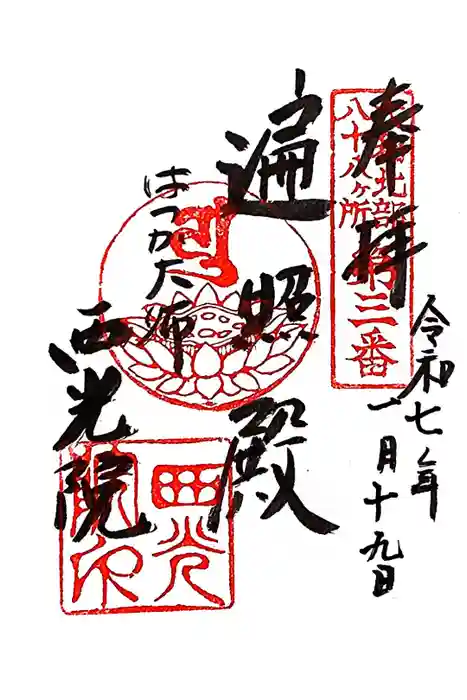 奉拝
八十八ヶ所
三番
令和七年
一月十九日
遍照殿
はつがた師
西光院
西光院印